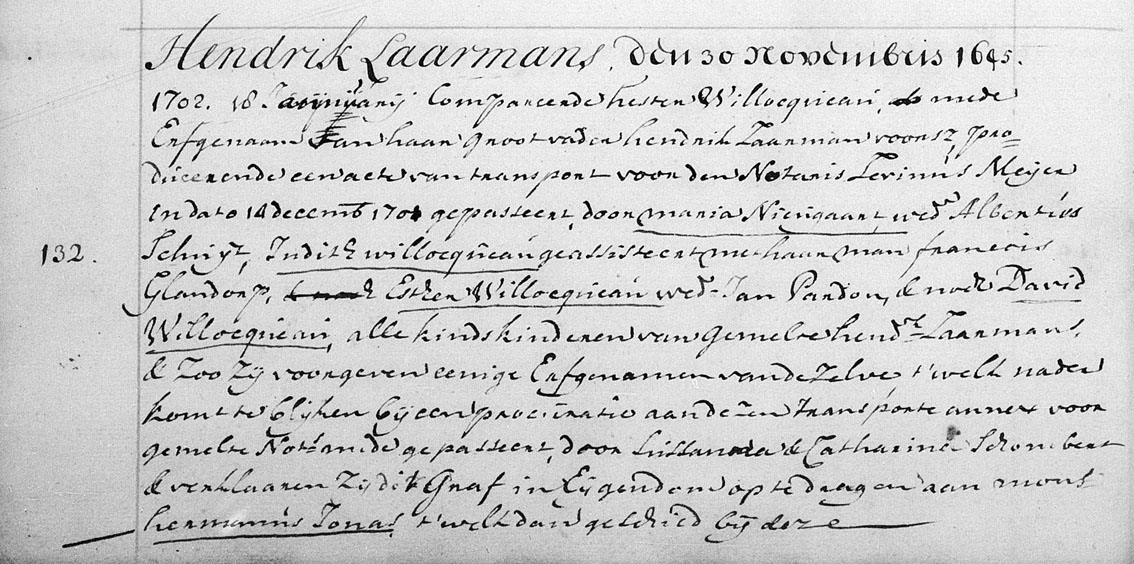 Hendrik Laarmans, den 30 Novembris 1645.
1702. 18 Januarij Compareerde hester Willocqueau, mede
Erfgenaam van haar Groot vader hendrik Laarman voorsz pro=
duceerende een acte van transport voor den Notaris Levinus Meyer
In dato 14 decemb 1701 gepasseert, door maria Nieugaart, wedr Albertus
132. Schuyt, Judith willocqueau geassisteert met haar man francois
Glandorp, Esther Willocqueau wedr Jan Pardon, & noch David
Willocqueau, alle kindskinderen van gemelte hendrk Laarmans,
& Zoo Zij voorgeven eenige Erfgenamen van de Zelve, t'welk nader
komt te blijken bij een procuratie aan dezen transporte annex voor
gemelte Nots mede gepasseert, door Sussanna & Catharina Schombert
& verklaaren Zij dit Graf in Eijgendom op te dragen aan mons
hermanus Jonas, t'welk dan geschied bij deze